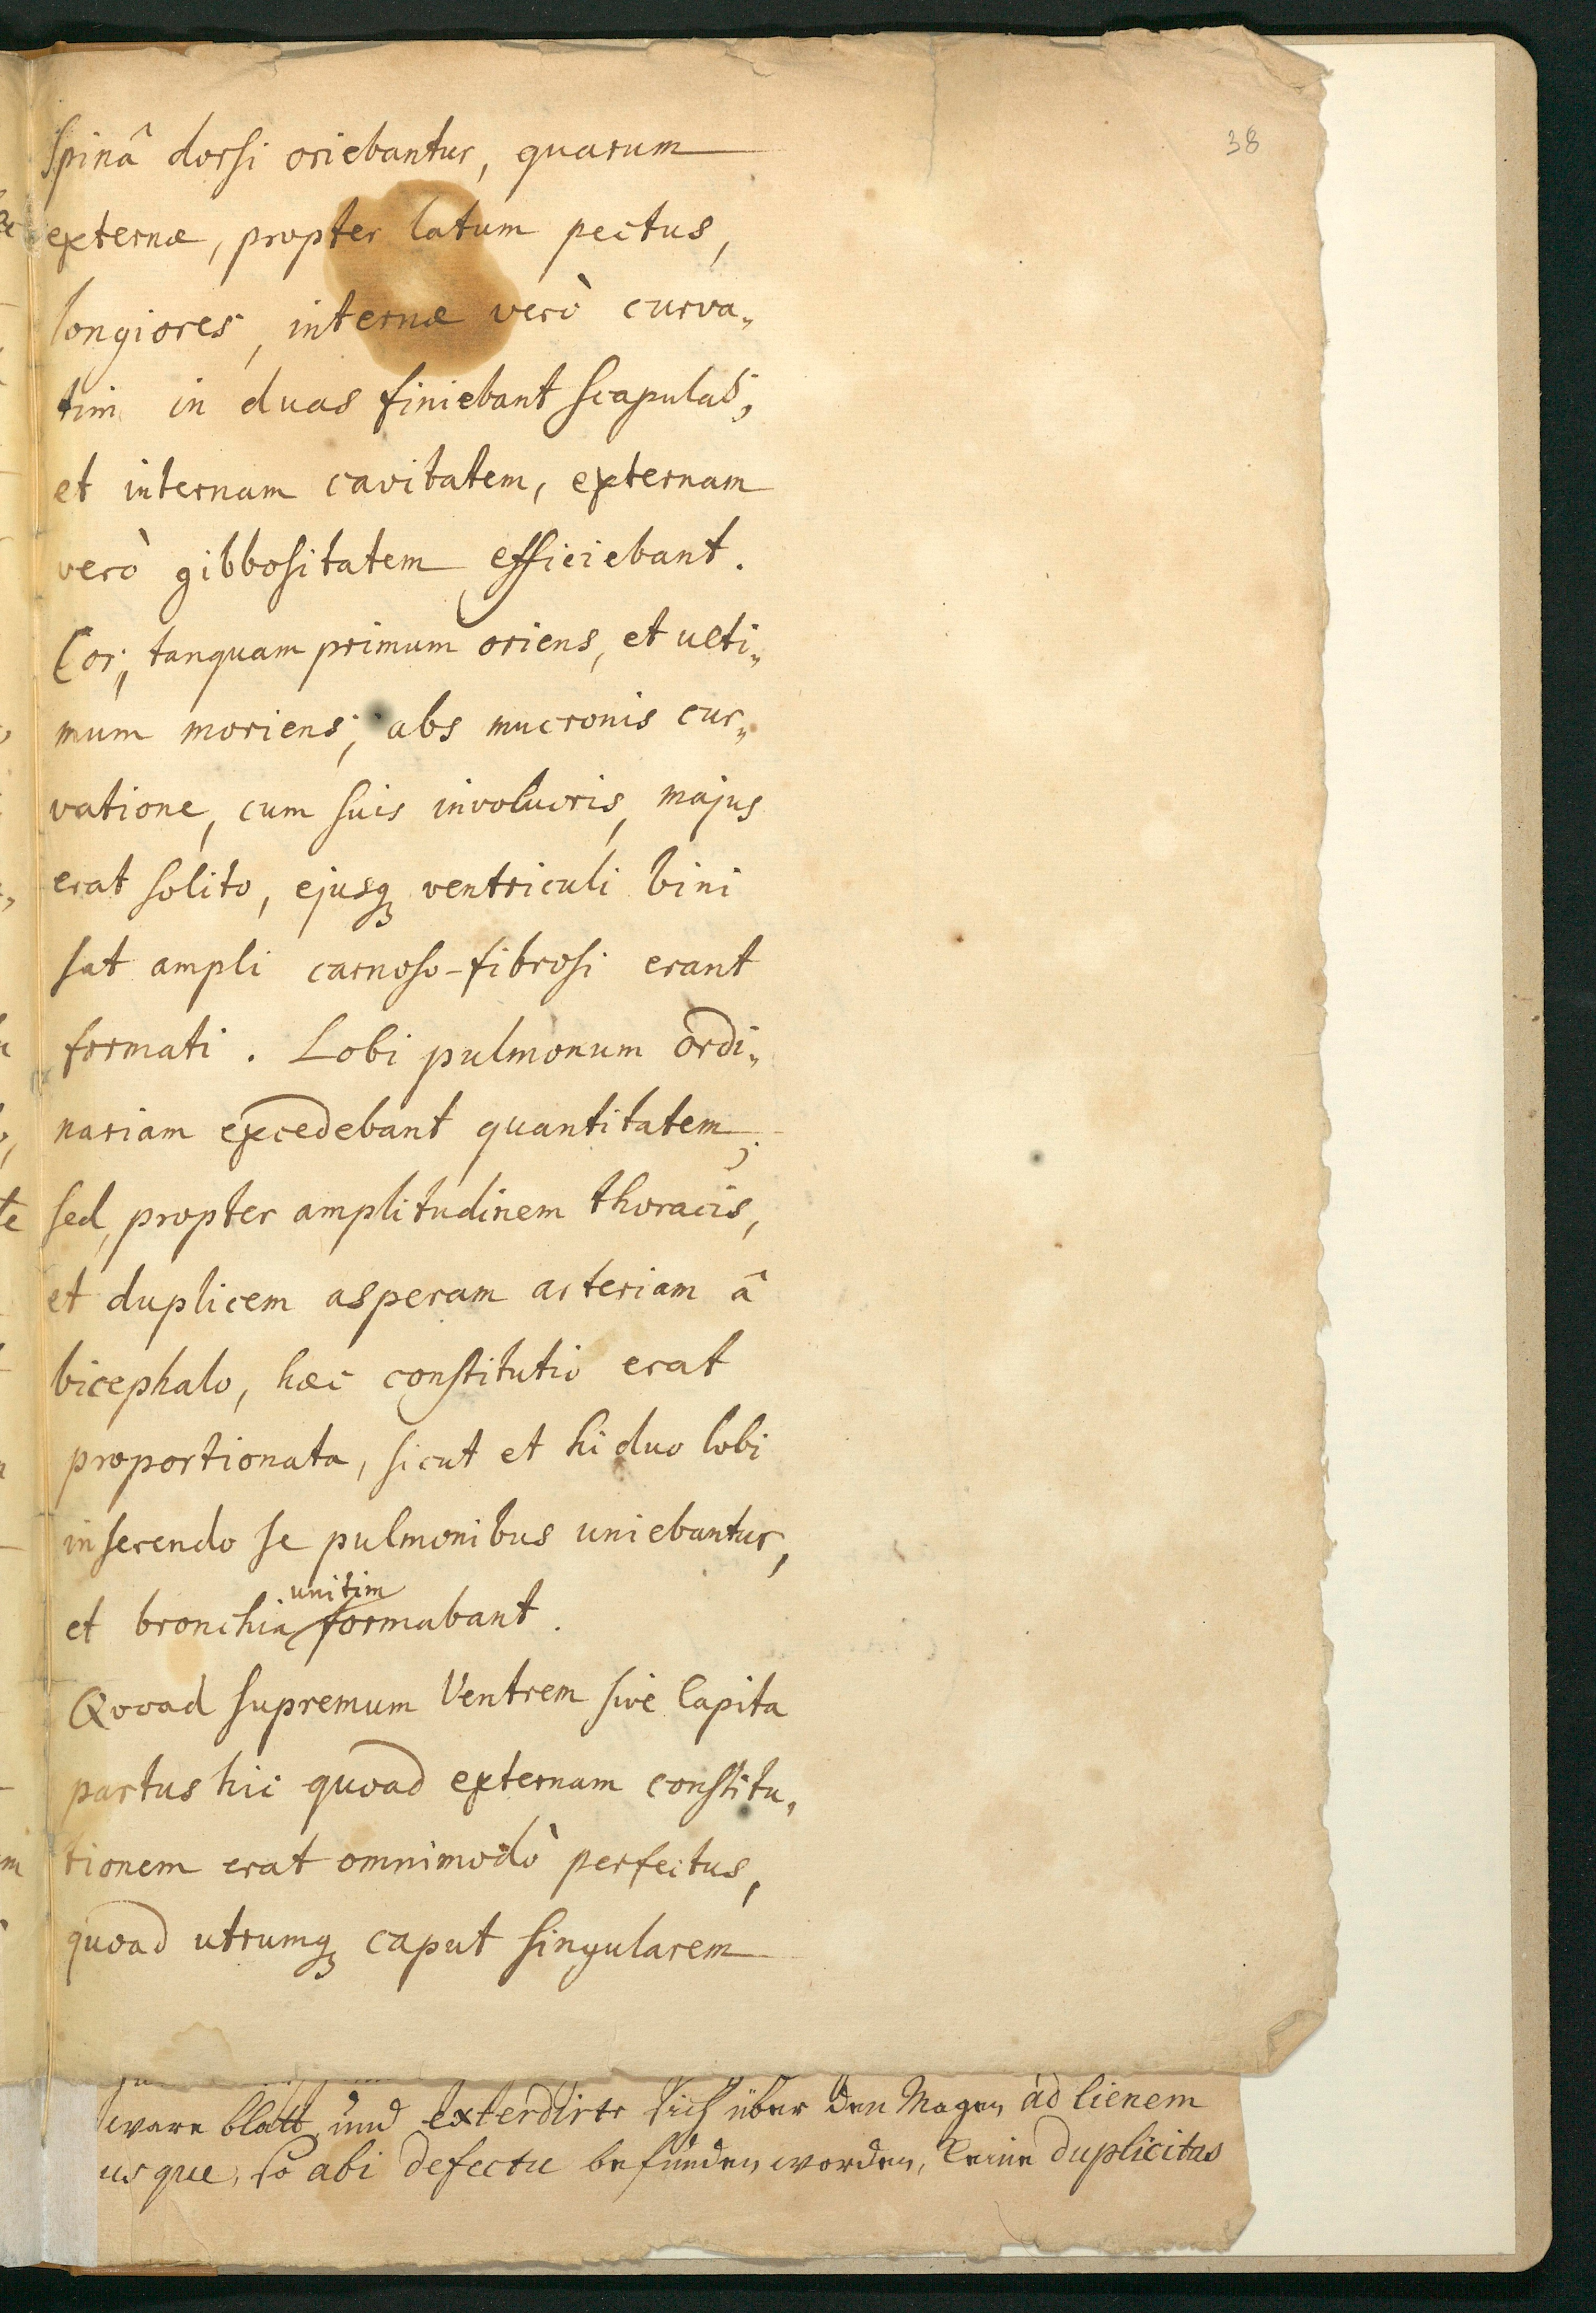 38
spinâ dorsi oriebantur, quarum
externæ, propter latum pectus,
longiores, internæ verò curva„
tim in duas finiebant scapulas,
et internam cavitatem, externam
verò gibbositatem efficiebant.
Cor, tanquam primum oriens, et ulti„
mum moriens, abs mucronis cur„
vatione, cum suis involucris, majus
erat solito, ejusq; ventriculi bini
sat ampli carnoso-fibrosi erant
formati. Lobi pulmonum ordi„
nariam excedebant quantitatem;
sed, propter amplitudinem thoracis,
et duplicem asperam arteriam â
bicephalo, hæc constitutio erat
proportionata, sicut et hi duo lobi
inserendo se pulmonibus uniebantur,
unitim
et bronchia formabant.
Qvoad supremum Ventrem sive Capita
partus hic quoad externam constitu„
tionem erat omnimodò perfectus,
quoad utrumq; caput singularem
ware blatt und extendirte sich über den Magen ad lienem
usque, so abi defectu befunden worden, keine duplicitas